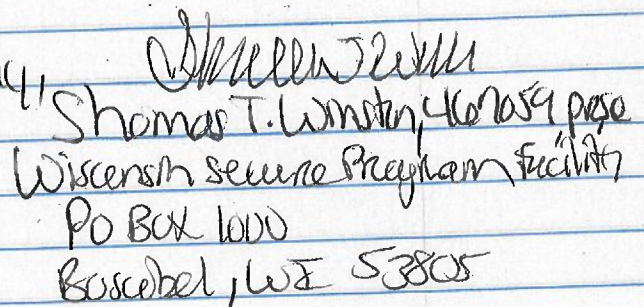 Shomas T. Winston, 467059 prose
Wisconsin Secure Program Facility
PO BOX 1000
Boscobel, WI 53805